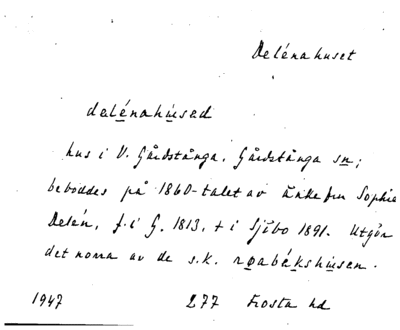 Delénahuset
delénahụ̈sed
hus i V. Gårdstånga, Gårdstånga sn;
beboddes på 1860-talet av änkefru Sophie
Delén, f. i G. 1813, † i Sjöbo 1891. Utgör
det norra av de s.k. røabákshusen.
1947 277 Frosta hd